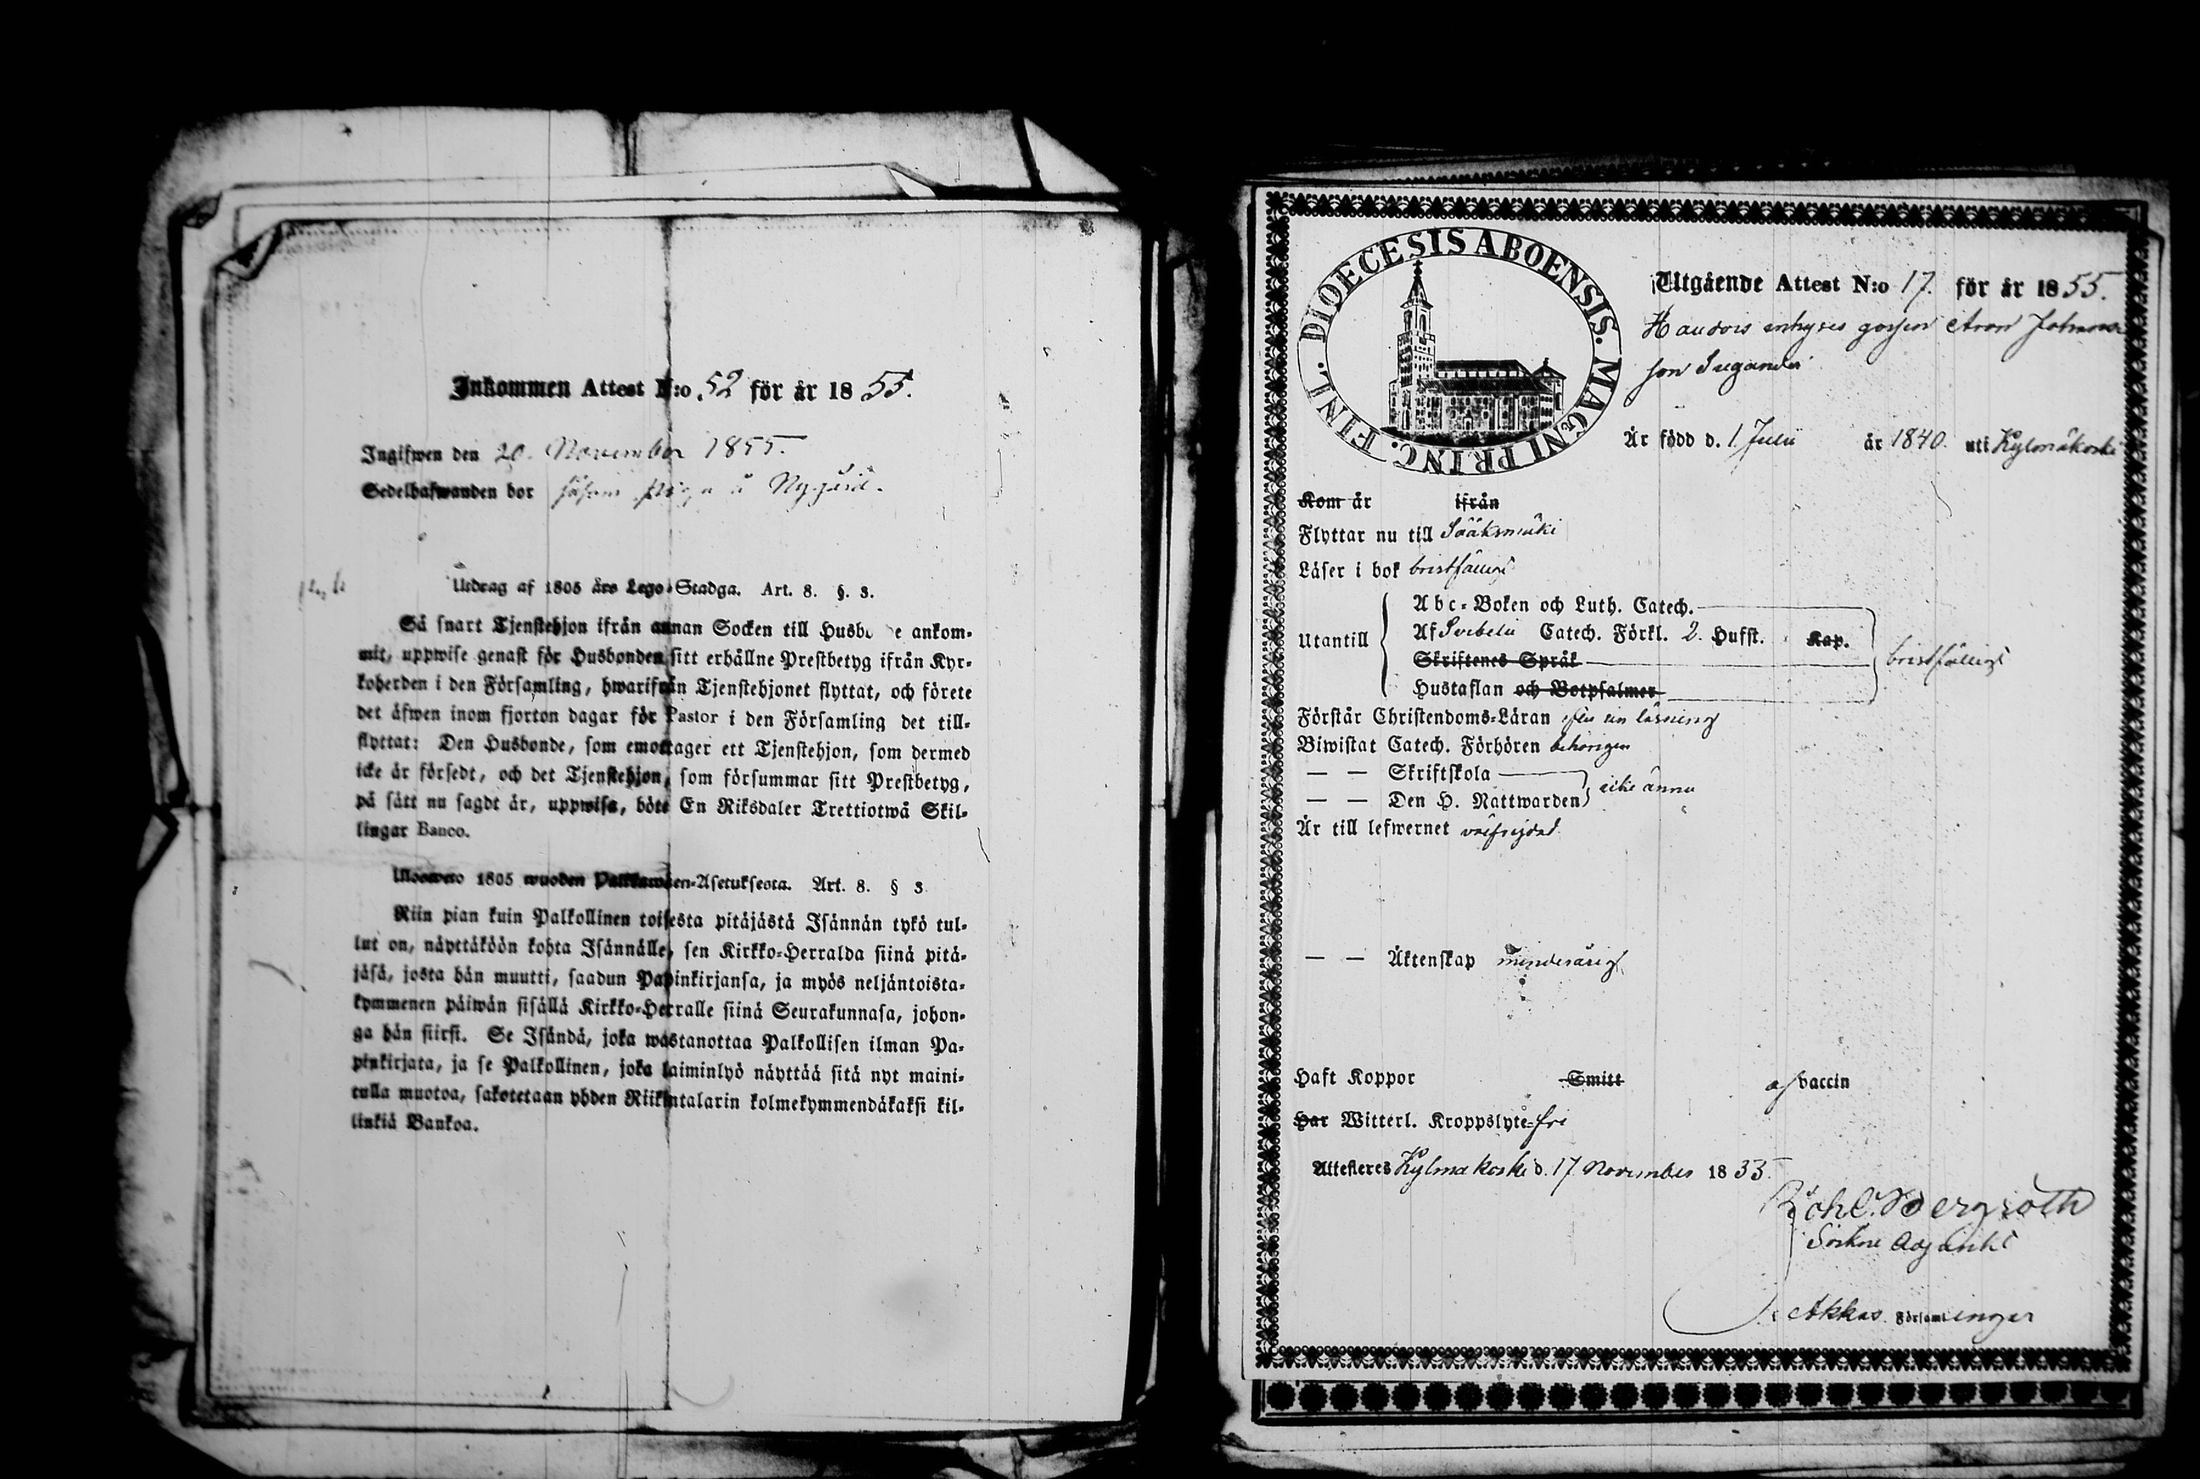 Inkommen Attest N:o 52 för år 1855.
Ingifwen den 20. November 1855.
Sedelhafwanden bor
Utdrag af 1805 års Lego-Stadga. Art. 8. §. 3.
Så snart Tjenstehjon ifrån annan Socken till Husbonde ankom-
mit, uppwise genast för Husbonden sitt erhållne Prestbetyg ifrån Kyr-
koherden i den Församling, hwarifrån Tjenstehjonet flyttat, och förete
det äfwen inom fjorton dagar för Pastor i den Församling det till-
flyttat: Den Husbonde, som emottager ett Tjenstehjon, som dermed
icke är försedt, och det Tjenstehjon, som försummar sitt Prestbetyg,
på sätt nu sagdt är, uppwisa, böte En Riksdaler Trettiotwå Skil-
lingar Banco.
1805 wuoden Palkkawäen-Asetuksesta. Art. 8. § 3
Niin pian kuin Palkollinen toisesta pitäjästä Isännän tykö tul-
lut on, näyttäköön kohta Isännälle, sen Kirkko-Herralda siinä pitä-
jäsä, josta hän muutti, saadun Papinkirjansa, ja myös neljäntoista-
kymmenen päiwän sisällä Kirkko-Herralle siinä Seurakunnasa, johon-
ga hän siirsi. Se Isändä, joka wastanottaa Palkollisen ilman Pa-
pinkirjata, ja se Palkollinen, joka laiminlyö näyttää sitä nyt maini-
tulla muotoa, sakotetaan yhden Riikintalarin kolmekymmendäkaksi kil-
linkiä Bankoa.
DIOECESIS ABOENSIS. MAGNI PRINC. FINL.
Utgående Attest N:o 17. för år 1855.
Aron Johans
son
Är född d. 1 Julii år 1840. uti Kylmäkoski
Kom år ifrån
Flyttar nu till Sääksmäki
Läser i bok bristfälligt
Utantill
Abc-Boken och Luth. Catech.
Af Svebelii Catech. Förkl. 2. Hufst. Kap.
Skriftenes Språk
Hustaflan och Botpsalmer
bristfälligt
Förstår Christendoms-Läran efter sin läsning
Biwistat Catech. Förhören behörigen
— — Skriftskola
— — Den H. Nattwarden
icke ännu
Är till lefwernet oförvitlig
— — Äktenskap minderårig
Haft Koppor Smitt af vaccin
Har Witterl. Kroppslyte-fri
Attesteres Kylmäkoski d. 17 November 1855.
Bergroth
Sockne Adjunkt
i Akkas Församlingar